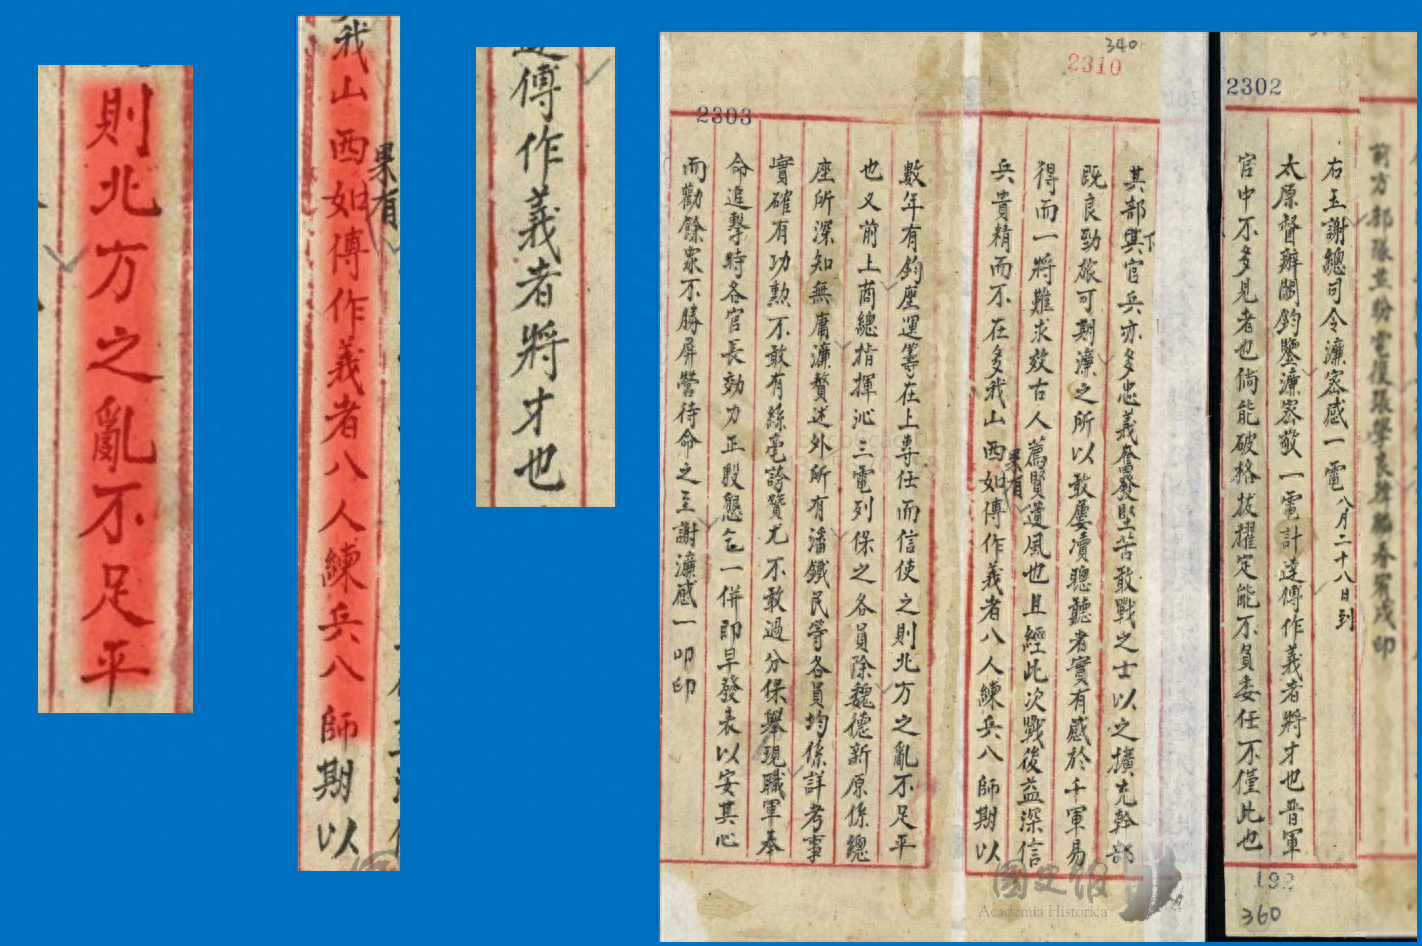 則北方之亂不足平
我山西如傅作義者八人練兵八師期以
果有
傅作義者將才也
2302
右玉謝總司令濂密感一電 八月二十八日到
太原督辦閻鈞鑒濂密敬一電計達傅作義者將才也晋軍
官中不多見者也倘能破格拔擢定能不負委任不僅此也
192
360
340
2310
其部其下官兵亦多忠義奮發堅苦敢戰之士以之擴充幹部
既良勁旅可期濂之所以敢屢凟聰聽者實有感於千軍易
得而一將難求效古人薦賢遺風也且經此次戰後益深信
兵貴精而不在多我山西果有如傅作義者八人練兵八師期以
2303
數年有鈞座運籌在上專任而信使之則北方之亂不足平
也又前上商總指揮沁三電列保之各員除魏德新原係總
座所深知無庸濂贅述外所有潘鐵民等各員均係詳考事
實確有功勳不敢有絲毫誇贊尤不敢過分保舉現職軍奉
命追擊時各官長効力正殷懇乞一併即早發表以安其心
而勸餘眾不勝屏營待命之至謝濂感一叩印
國史館
Academia Historica